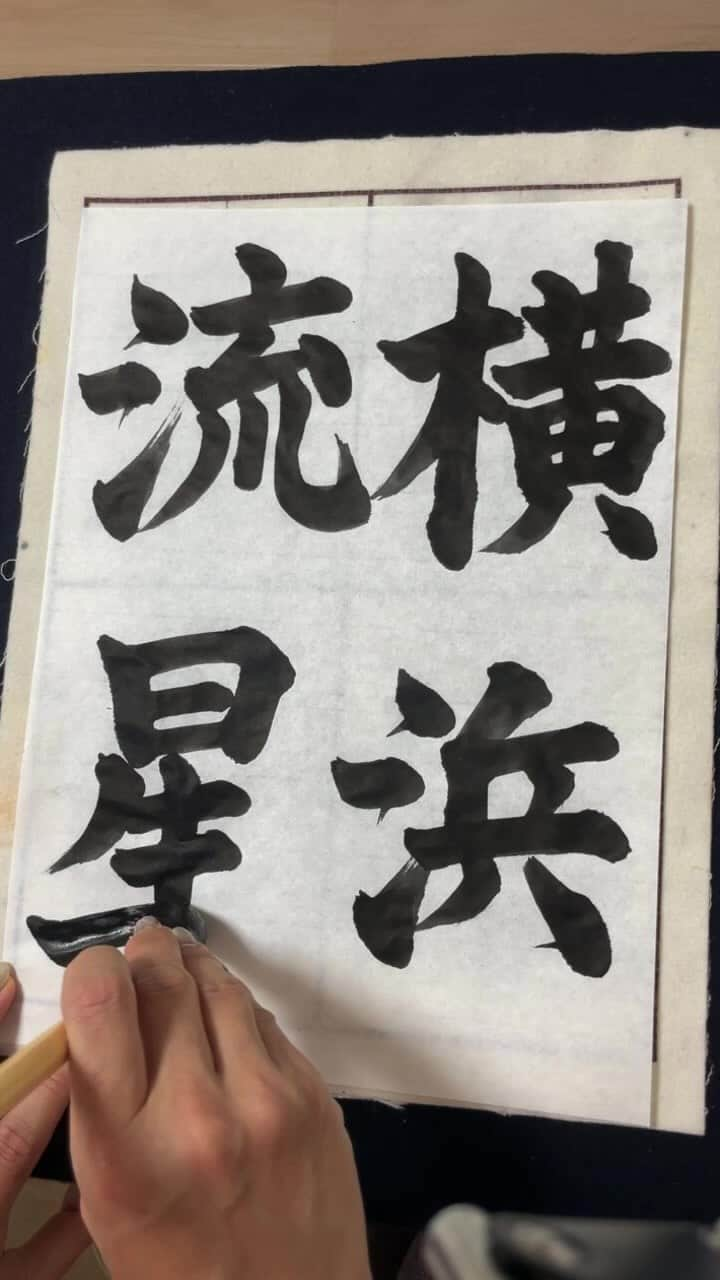 横浜
流星